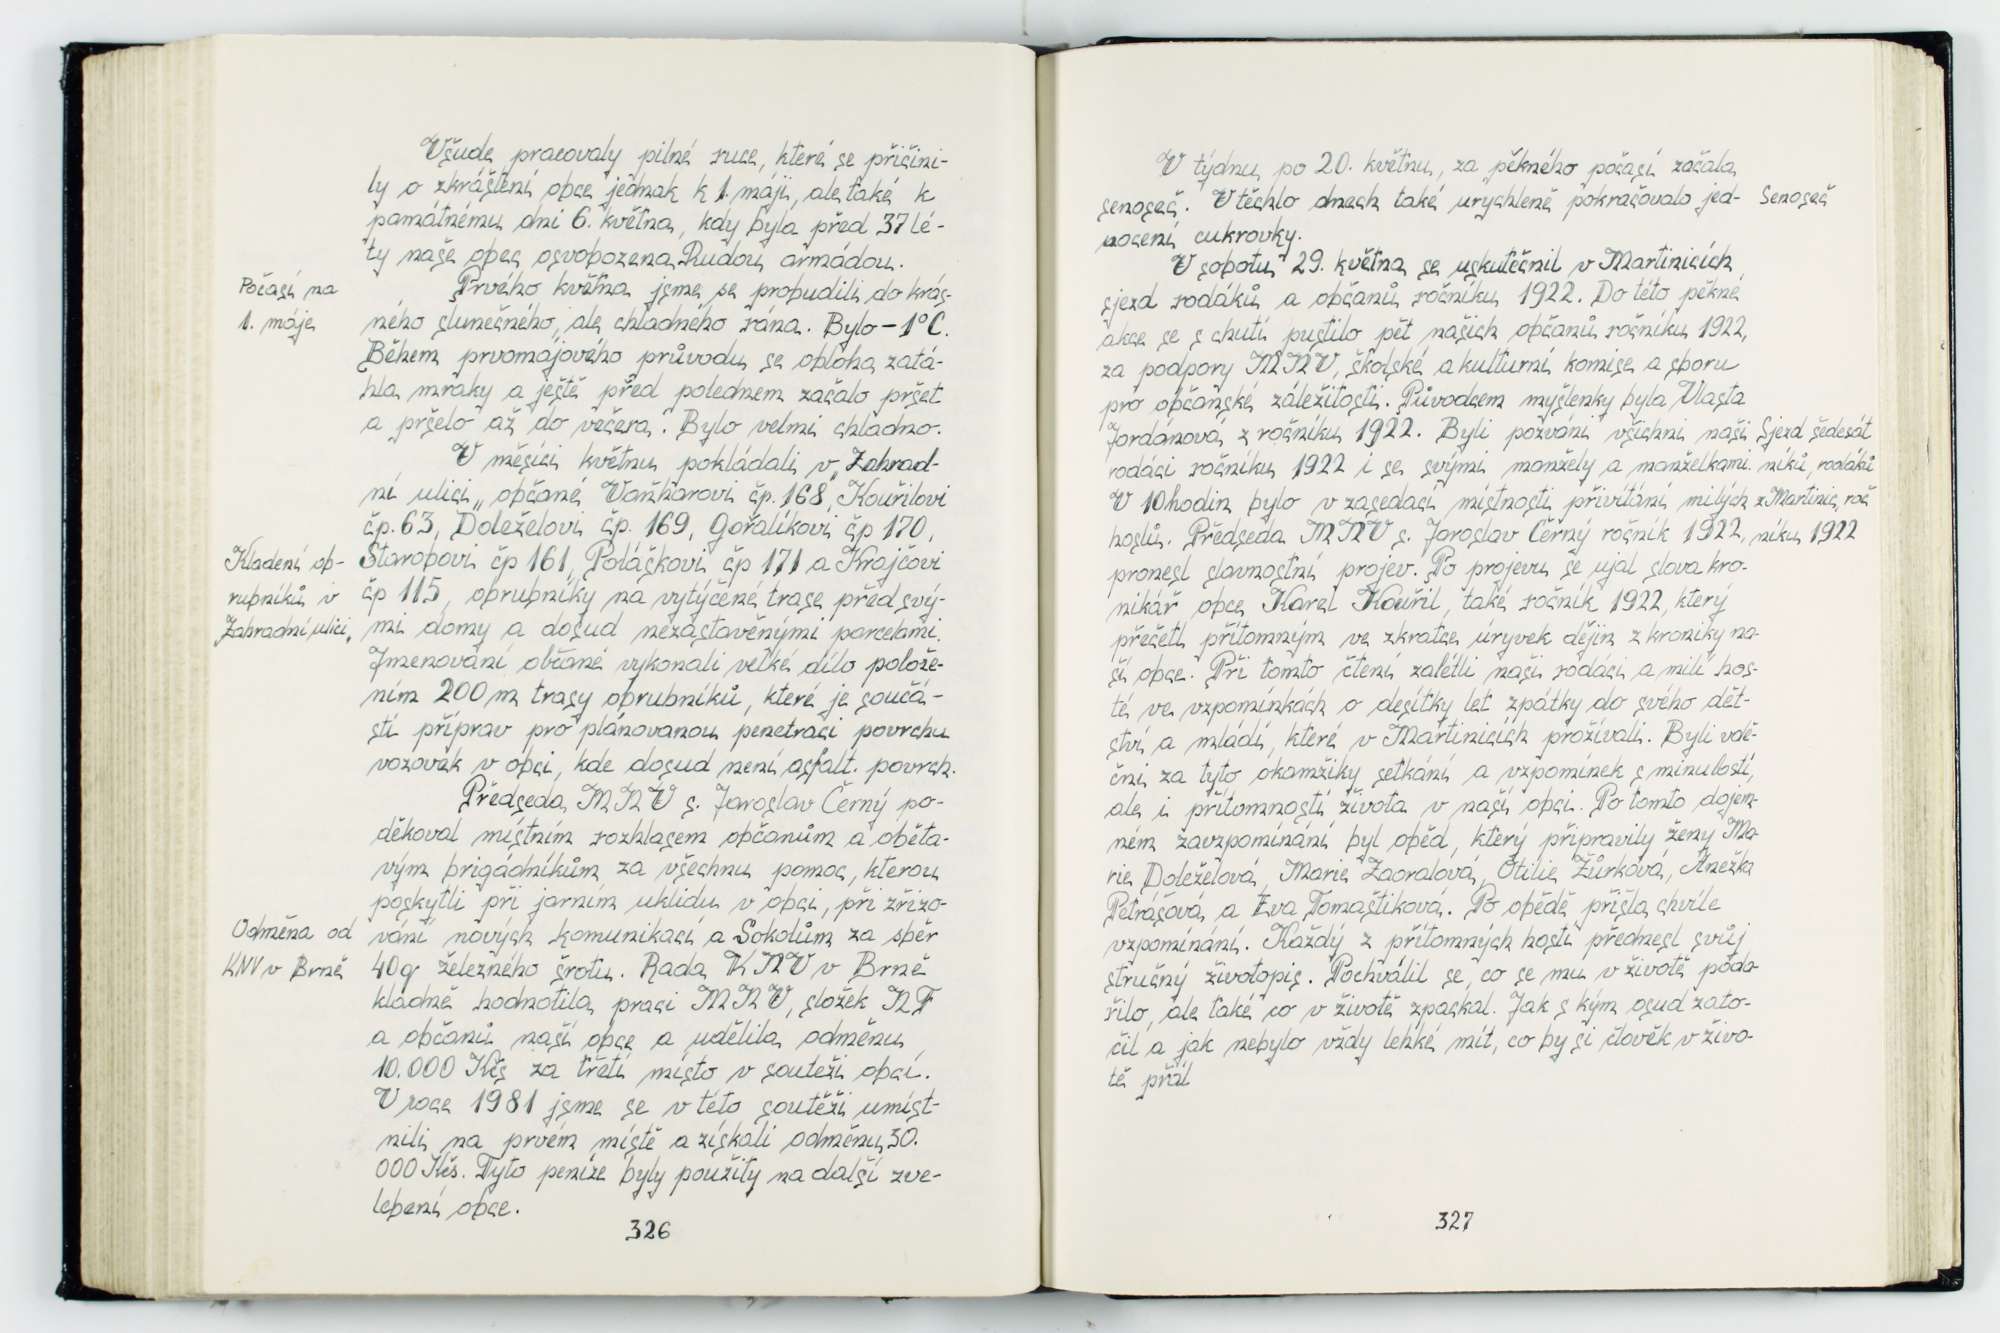 Všude pracovaly pilné ruce, které se přičini-
ly o zkrášlení obce jednak k 1. máji, ale také k
památnému dni 6. května, kdy byla před 37 lé-
ty naše obec osvobozena Rudou armádou.
Počasí na
1. máje
Prvého května jsme se probudili do krás-
ného slunečného, ale chladného rána. Bylo -1°C.
Během prvomájového průvodu se obloha zatá-
hla mraky a ještě před polednem začalo pršet
a pršelo až do večera. Bylo velmi chladno.
V měsíci květnu pokládali v „Zahrad-
ní ulici„ občané Vaňharovi čp. 168, Kouřilovi
čp. 63, Doleželovi čp. 169, Gořalíkovi čp 170,
Kladení ob-
rubníků v
Zahradní ulici„
Starobovi čp 161, Poláškovi čp 171 a Krajčovi
čp 115, obrubníky na vytýčené trase před svý-
mi domy a dosud nezastavěnými parcelami.
Jmenovaní občané vykonali velké dílo polože-
ním 200 m trasy obrubníků, které je součá-
stí příprav pro plánovanou penetraci povrchu
vozovek v obci, kde dosud není asfalt. povrch.
Předseda MNV s. Jaroslav Černý po-
děkoval místním rozhlasem občanům a oběta-
vým brigádníkům za všechnu pomoc, kterou
poskytli při jarním uklidu v obci, při zřizo-
Odměna od
KNV v Brně
vání nových komunikací a Sokolům za sběr
40q železného šrotu. Rada KNV v Brně
kladně hodnotila práci MNV, složek NF
a občanů naší obce a udělila odměnu
10.000 Kčs za třetí místo v soutěži obcí.
V roce 1981 jsme se v této soutěži umíst-
nili na prvém místě a získali odměnu 30.
000 Kčs. Tyto peníze byly použity na další zve-
lebení obce.
326
V týdnu po 20. květnu, za pěkného počasí začala
senoseč. V těchto dnech také urychleně pokračovalo jed-
Senoseč
nocení cukrovky.
V sobotu 29. května se uskutečnil v Martinicích
sjezd rodáků a občanů ročníku 1922. Do této pěkné
akce se s chutí pustilo pět našich občanů ročníku 1922,
za podpory MNV, školské a kulturní komise a sboru
pro občanské záležitosti. Původcem myšlenky byla Vlasta
Jordánová z ročníku 1922. Byli pozváni všichni naši
rodáci ročníku 1922 i se svými manžely a manželkami.
V 10 hodin bylo v zasedací místnosti přivítání milých
hostů. Předseda MNV s. Jaroslav Černý ročník 1922,
Sjezd šedesát
níků, rodáků
z Martinic, roč
níku 1922
pronesl slavnostní projev. Po projevu se ujal slova kro-
nikář obce Karel Kouřil, také ročník 1922, který
přečetl přítomným ve zkratce úryvek dějin z kroniky na-
ší obce. Při tomto čtení zalétli naši rodáci a milí hos-
té ve vzpomínkách o desítky let zpátky do svého dět-
ství a mládí, které v Martinicích prožívali. Byli vdě-
čni za tyto okamžiky setkání a vzpomínek s minulostí,
ale i přítomností života v naší obci. Po tomto dojem-
ném zavzpomínání byl oběd, který připravily ženy Ma-
rie Doleželová, Marie Zaoralová, Otilie Žůrková, Anežka
Petrášová a Eva Tomaštíková. Po obědě přišla chvíle
vzpomínání. Každý z přítomných hostí přednesl svůj
stručný životopis. Pochválil se, co se mu v životě poda-
řilo, ale také co v životě zpackal. Jak s kým osud zato-
čil a jak nebylo vždy lehké mít, co by si člověk v živo-
tě přál
327